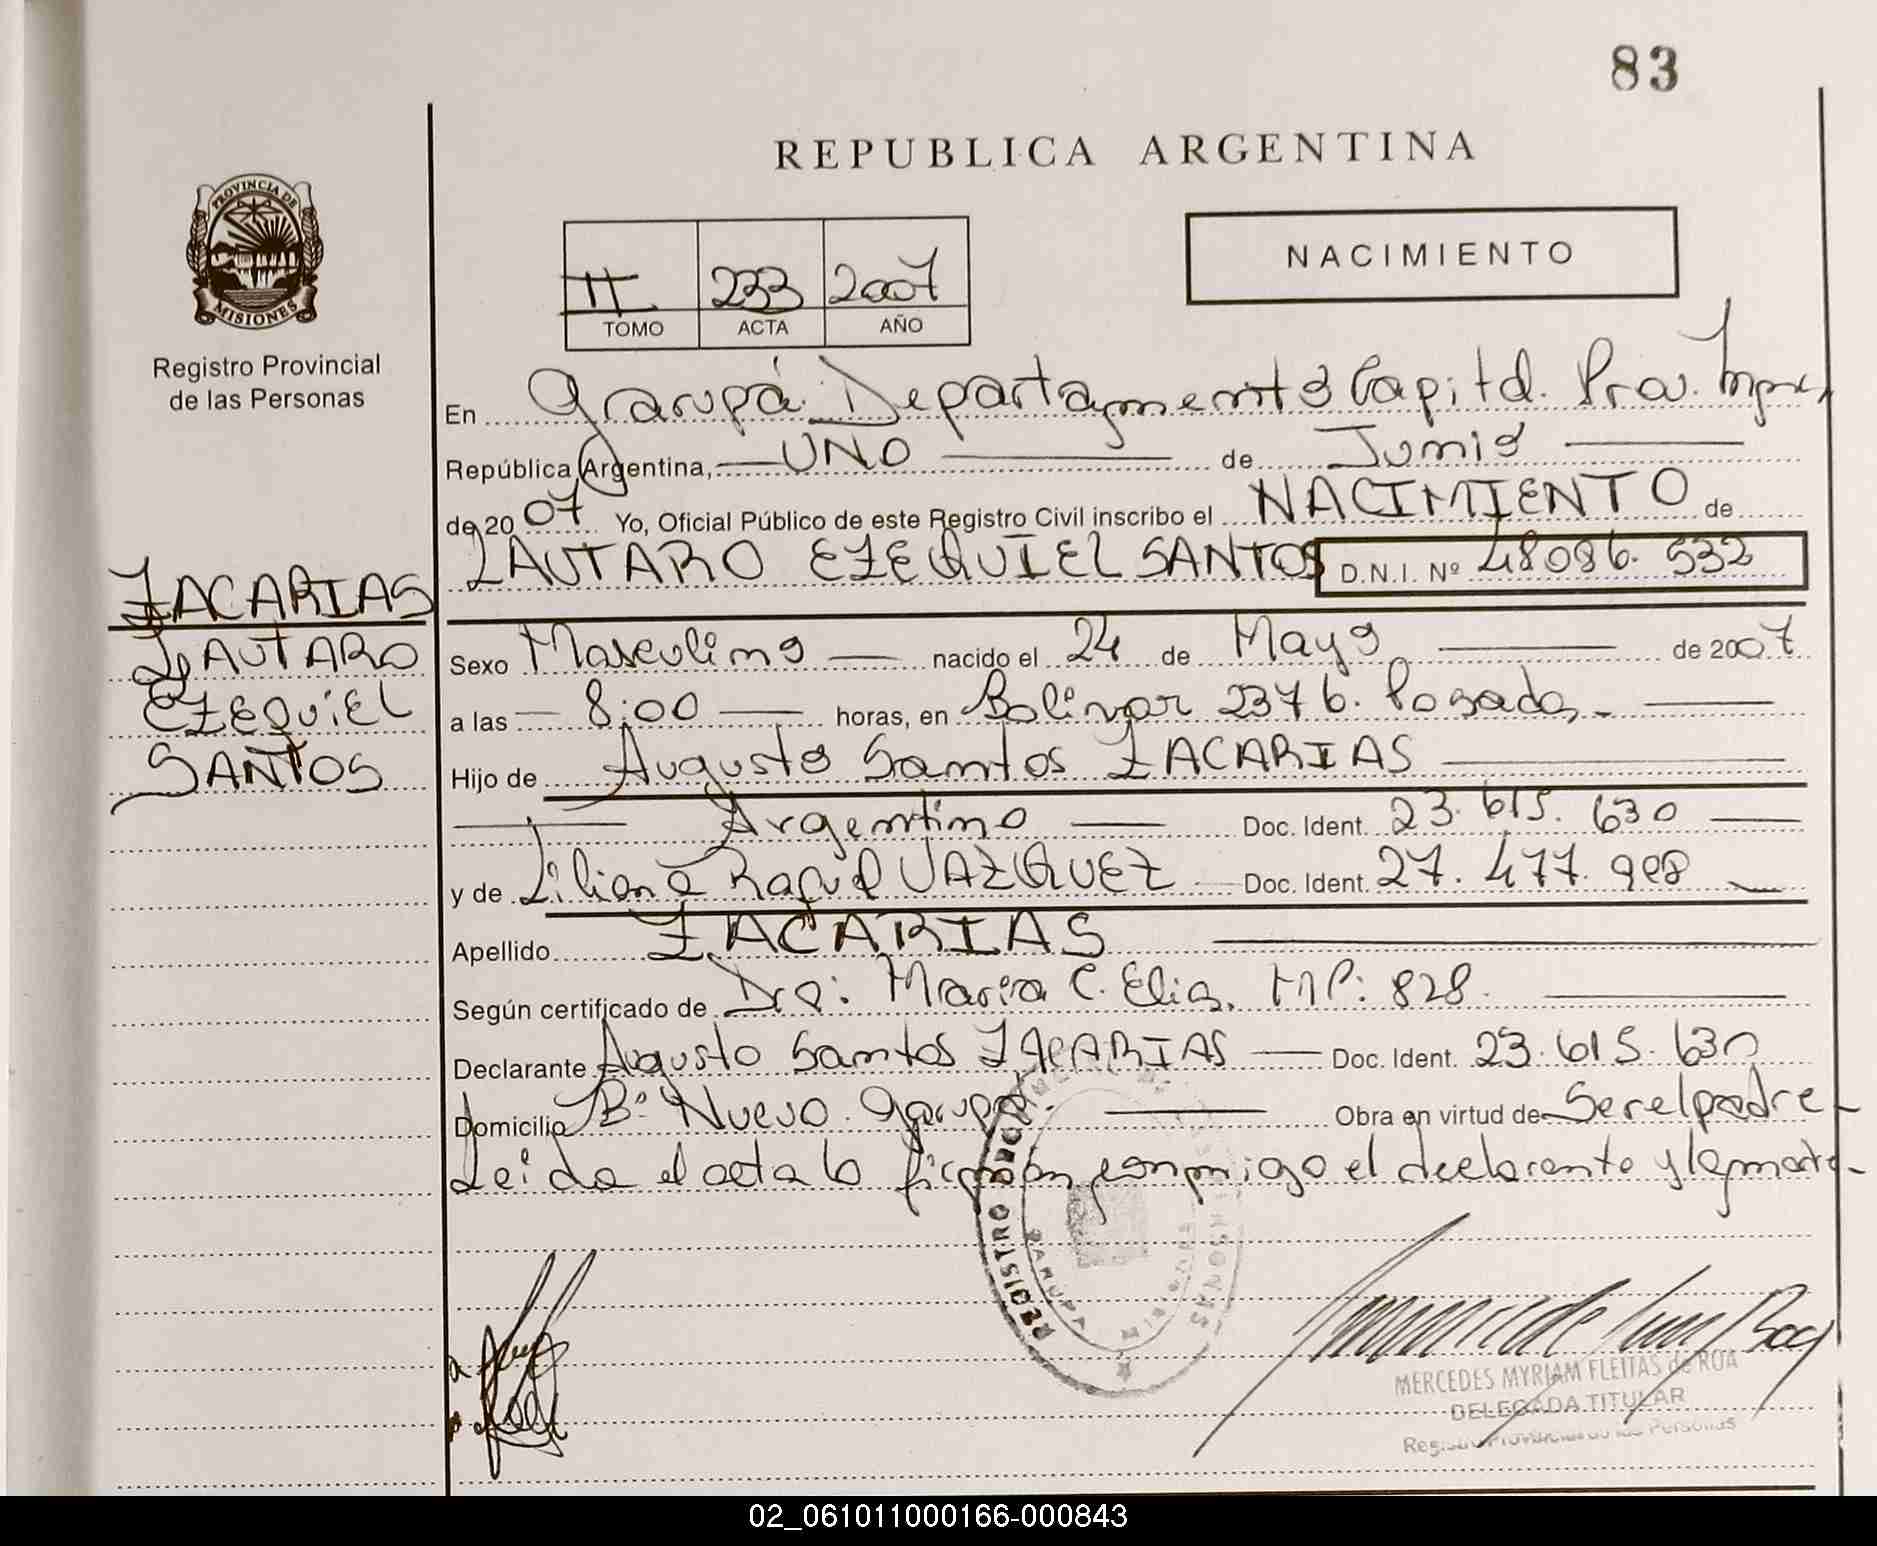 83
REPUBLICA ARGENTINA
PROVINCIA DE
MISIONES
Registro Provincial
de las Personas
NACIMIENTO
II 233 2007
TOMO ACTA AÑO
En Garupá Departamento Capital. Prov.
República Argentina, UNO de Junio
de 2007 Yo, Oficial Público de este Registro Civil inscribo el NACIMIENTO de
LAUTARO EZEQUIEL SANTOS D.N.I. Nº 48086.532
ZACARIAS
LAUTARO
EZEQUIEL
SANTOS
Sexo Masculino nacido el 24 de Mayo de 2007
a las 8:00 horas, en Bolivar 2376. Posadas
Hijo de Augusto Santos ZACARIAS
Argentino Doc. Ident. 23.615.630
y de Liliana Raquel VAZQUEZ Doc. Ident. 27.477.988
Apellido ZACARIAS
Según certificado de Dra: Maria C. Elias. MP: 828.
Declarante Augusto Santos ZACARIAS Doc. Ident. 23.615.630
Domicilio Bº Nuevo. Garupá. Obra en virtud de Ser el padre
Leida el acta la firman conmigo el declarante y la madre
REGISTRO PERSONAS
GARUPA
MERCEDES MYRIAM FLEITAS de ROA
DELEGADA TITULAR
Registro Provincial de las Personas
02_061011000166-000843